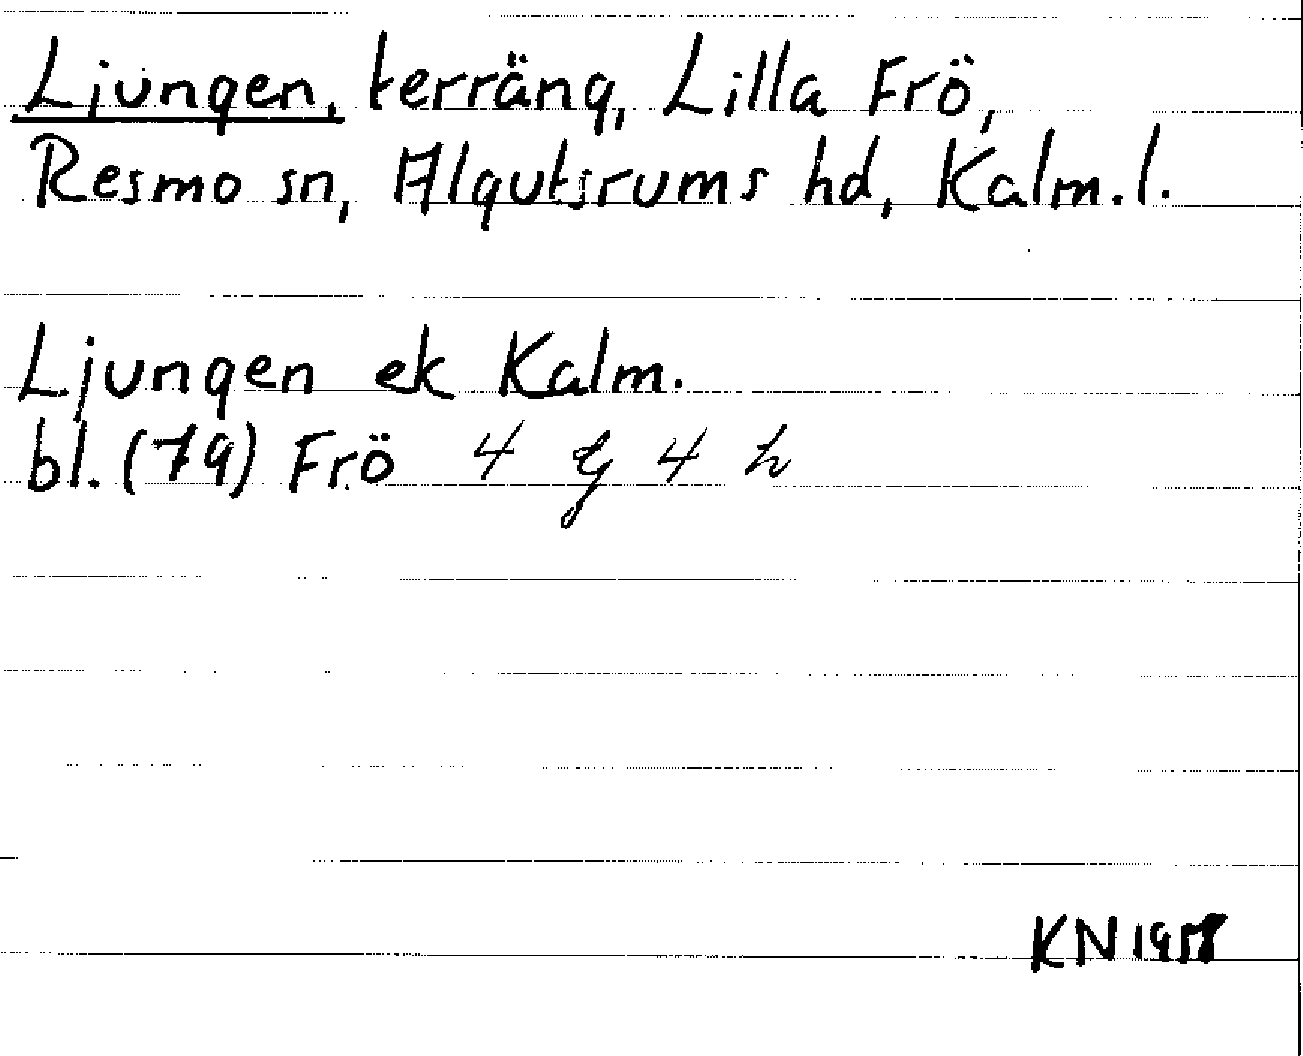 Ljungen, terräng, Lilla Frö,
Resmo sn, Algutsrums hd, Kalm. l.
Ljungen ek Kalm.
bl. (79) Frö 4 g 4 h
KN 1958